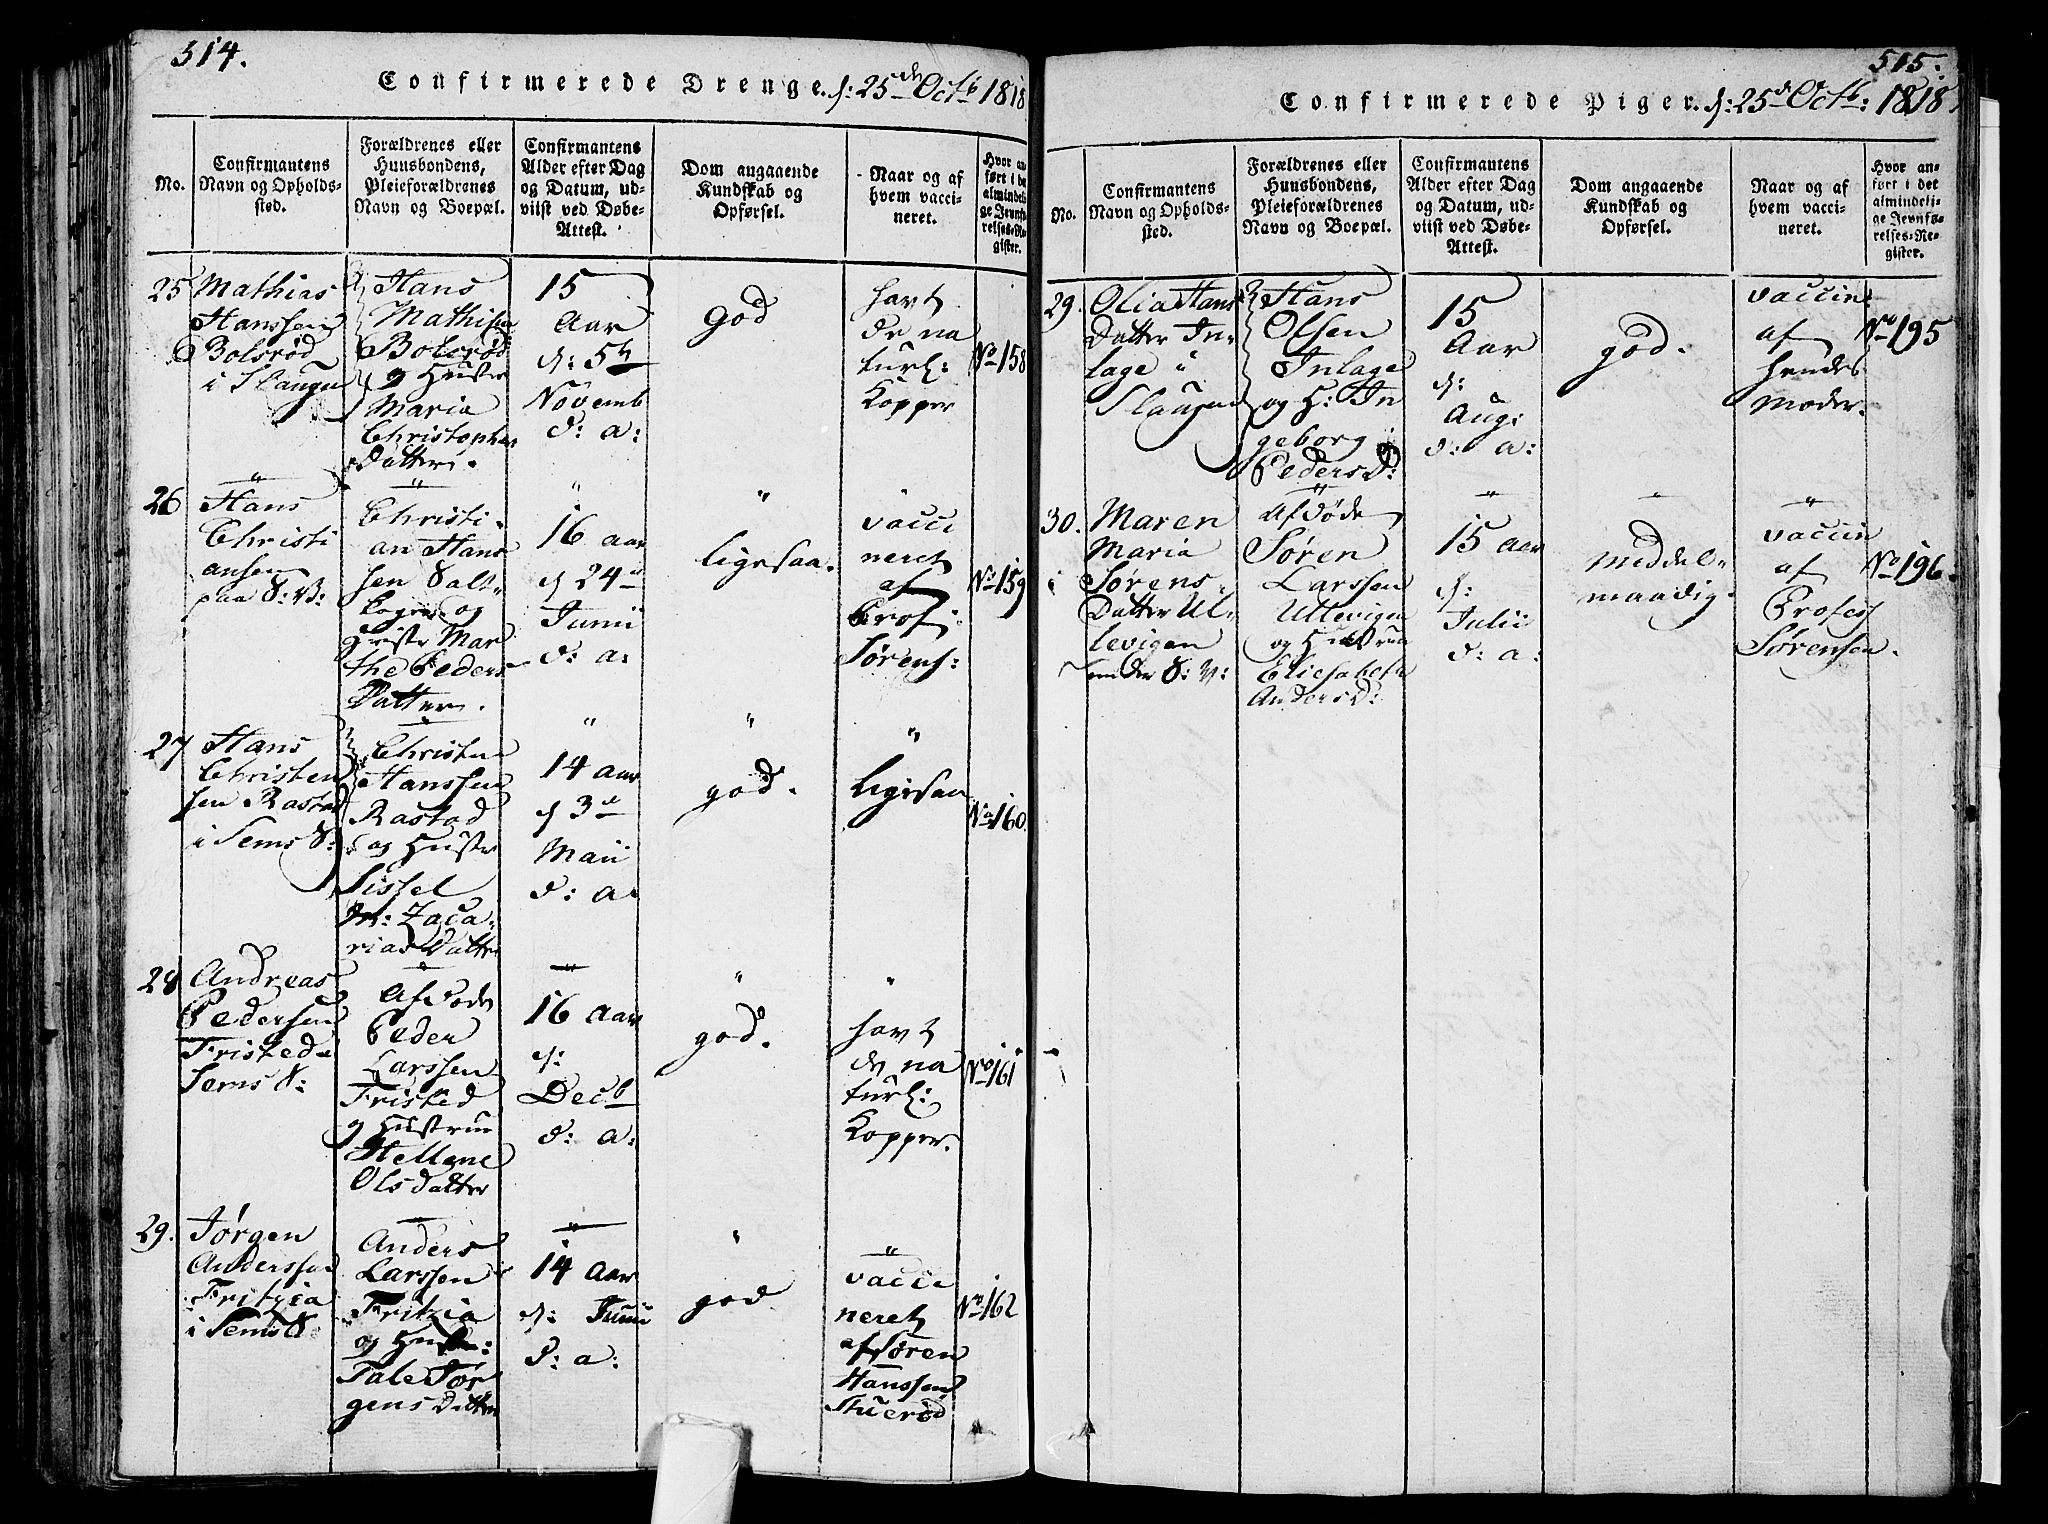 514.
Confirmerede Drenge. d: 25de Octb 1818
No.
Confirmantens
Navn og Opholds-
sted.
Forældrenes eller
Huusbondens,
Pleieforældrenes
Navn og Boepæl.
Confirmantens
Alder efter Dag
og Datum, ud-
viist ved Døbe-
Attest.
Dom angaaende
Kundskab og
Opførsel.
Naar og af
hvem vacci-
neret.
Hvor an-
ført i det
almindeli-
ge Jevnfø-
relses-Re-
gister.
25
Mathias
Hanssen
Bolsrød
i Slaugn
Hans
Mathisen
Bolsrød
og Hustr
Maria
Christophers
Datter.
15
Aar
d: 5te
Novemb
d: a:
God
havt
de na
turl:
Kopper
No 158
26
Hans
Christi
ansen
paa S: V:
Christi-
an Hans
sen Salt-
og
Hustr Mar
the Peders
Datter.
16 aar
d 24de
Junii
d: a:
ligesaa.
vacci
neret
af
Prof:
Sørens:
No 159
27
Hans
Christen
sen Rastad
i Sems S:
Christen
Hanssen
Rastad
og Hustr
Sissel
M: Zaca-
rias Datter
14 aar
d 3de
Maii
d: a:
god.
ligesaa
No 160.
28
Andreas
Pedersen
Fristed
Sems S:
Afdøde
Peder
Larssen
Fristed
og Hustrue
Hellene
Olsdatter
16 Aar
d:
Decb
d: a:
god.
havt
de na
turl:
Kopper.
No 161
29.
Jørgen
Anderssen
Fritzia
i Sems S
Anders
Larssen
Fritzia
og Hustr:
Tale Jør
gens Datter
14 Aar
d: Junii
d: a:
god
vacci
neret
af Søren
Hanssen
Stuerød
No 162
515.
Confirmerede Piger. d: 25d Octb: 1818
No.
Confirmantens
Navn og Opholds-
sted.
Forældrenes eller
Huusbondens,
Pleieforældrenes
Navn og Boepæl.
Confirmantens
Alder efter Dag
og Datum, ud-
viist ved Døbe-
Attest.
Dom angaaende
Kundskab og
Opførsel.
Naar og af
hvem vacci-
neret.
Hvor an-
ført i det
almindeli-
ge Jevnfø-
relses-Re-
gister.
29.
Olia Hans
Datter In-
lage i
Slaugen
Hans
Olsen
Inlage
og H: In
geborg
Peders D:
15
Aar
d:
Aug:
d: a:
god.
vaccin
af
hendes
Moder.
No 195
30.
Maren
Maria
Sørens
Datter Ul-
levigen
under S: V:
Afdøde
Søren
Larssen
Ullevigen
og Hustrue
Elisabeth
Anders D:
15 Aar
d:
Julii
d: a:
Middel-
maadig.
vaccin
af
Profess
Sørensen.
No 196.